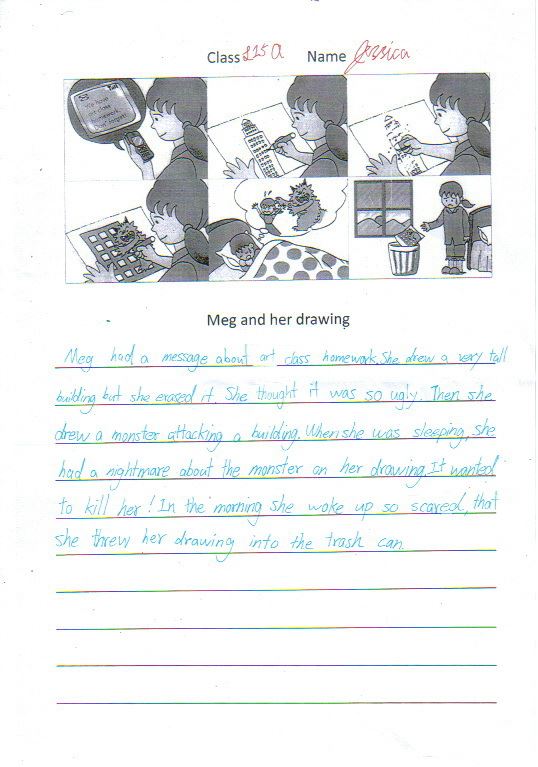 Class L15A Name Jessica
We have
art class
homework.
Don't forget!
Meg and her drawing
Meg had a message about art class homework. She drew a very tall
building but she erased it. She thought it was so ugly. Then she
drew a monster attacking a building. When she was sleeping, she
had a nightmare about the monster on her drawing. It wanted
to kill her! In the morning she woke up so scared, that
she threw her drawing into the trash can.